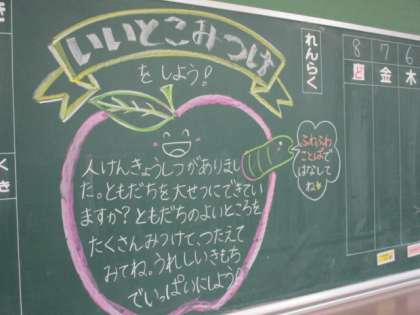 いいとこみつけ
をしよう!
人けんきょうしつがありまし
た。ともだちを大せつにできてい
ますか?ともだちのよいところを
たくさんみつけて、つたえて
みてね。うれしいきもち
でいっぱいにしよう!
ふわふわ
ことばで
はなして
ね
れんらく
8
7
6
土
金
木